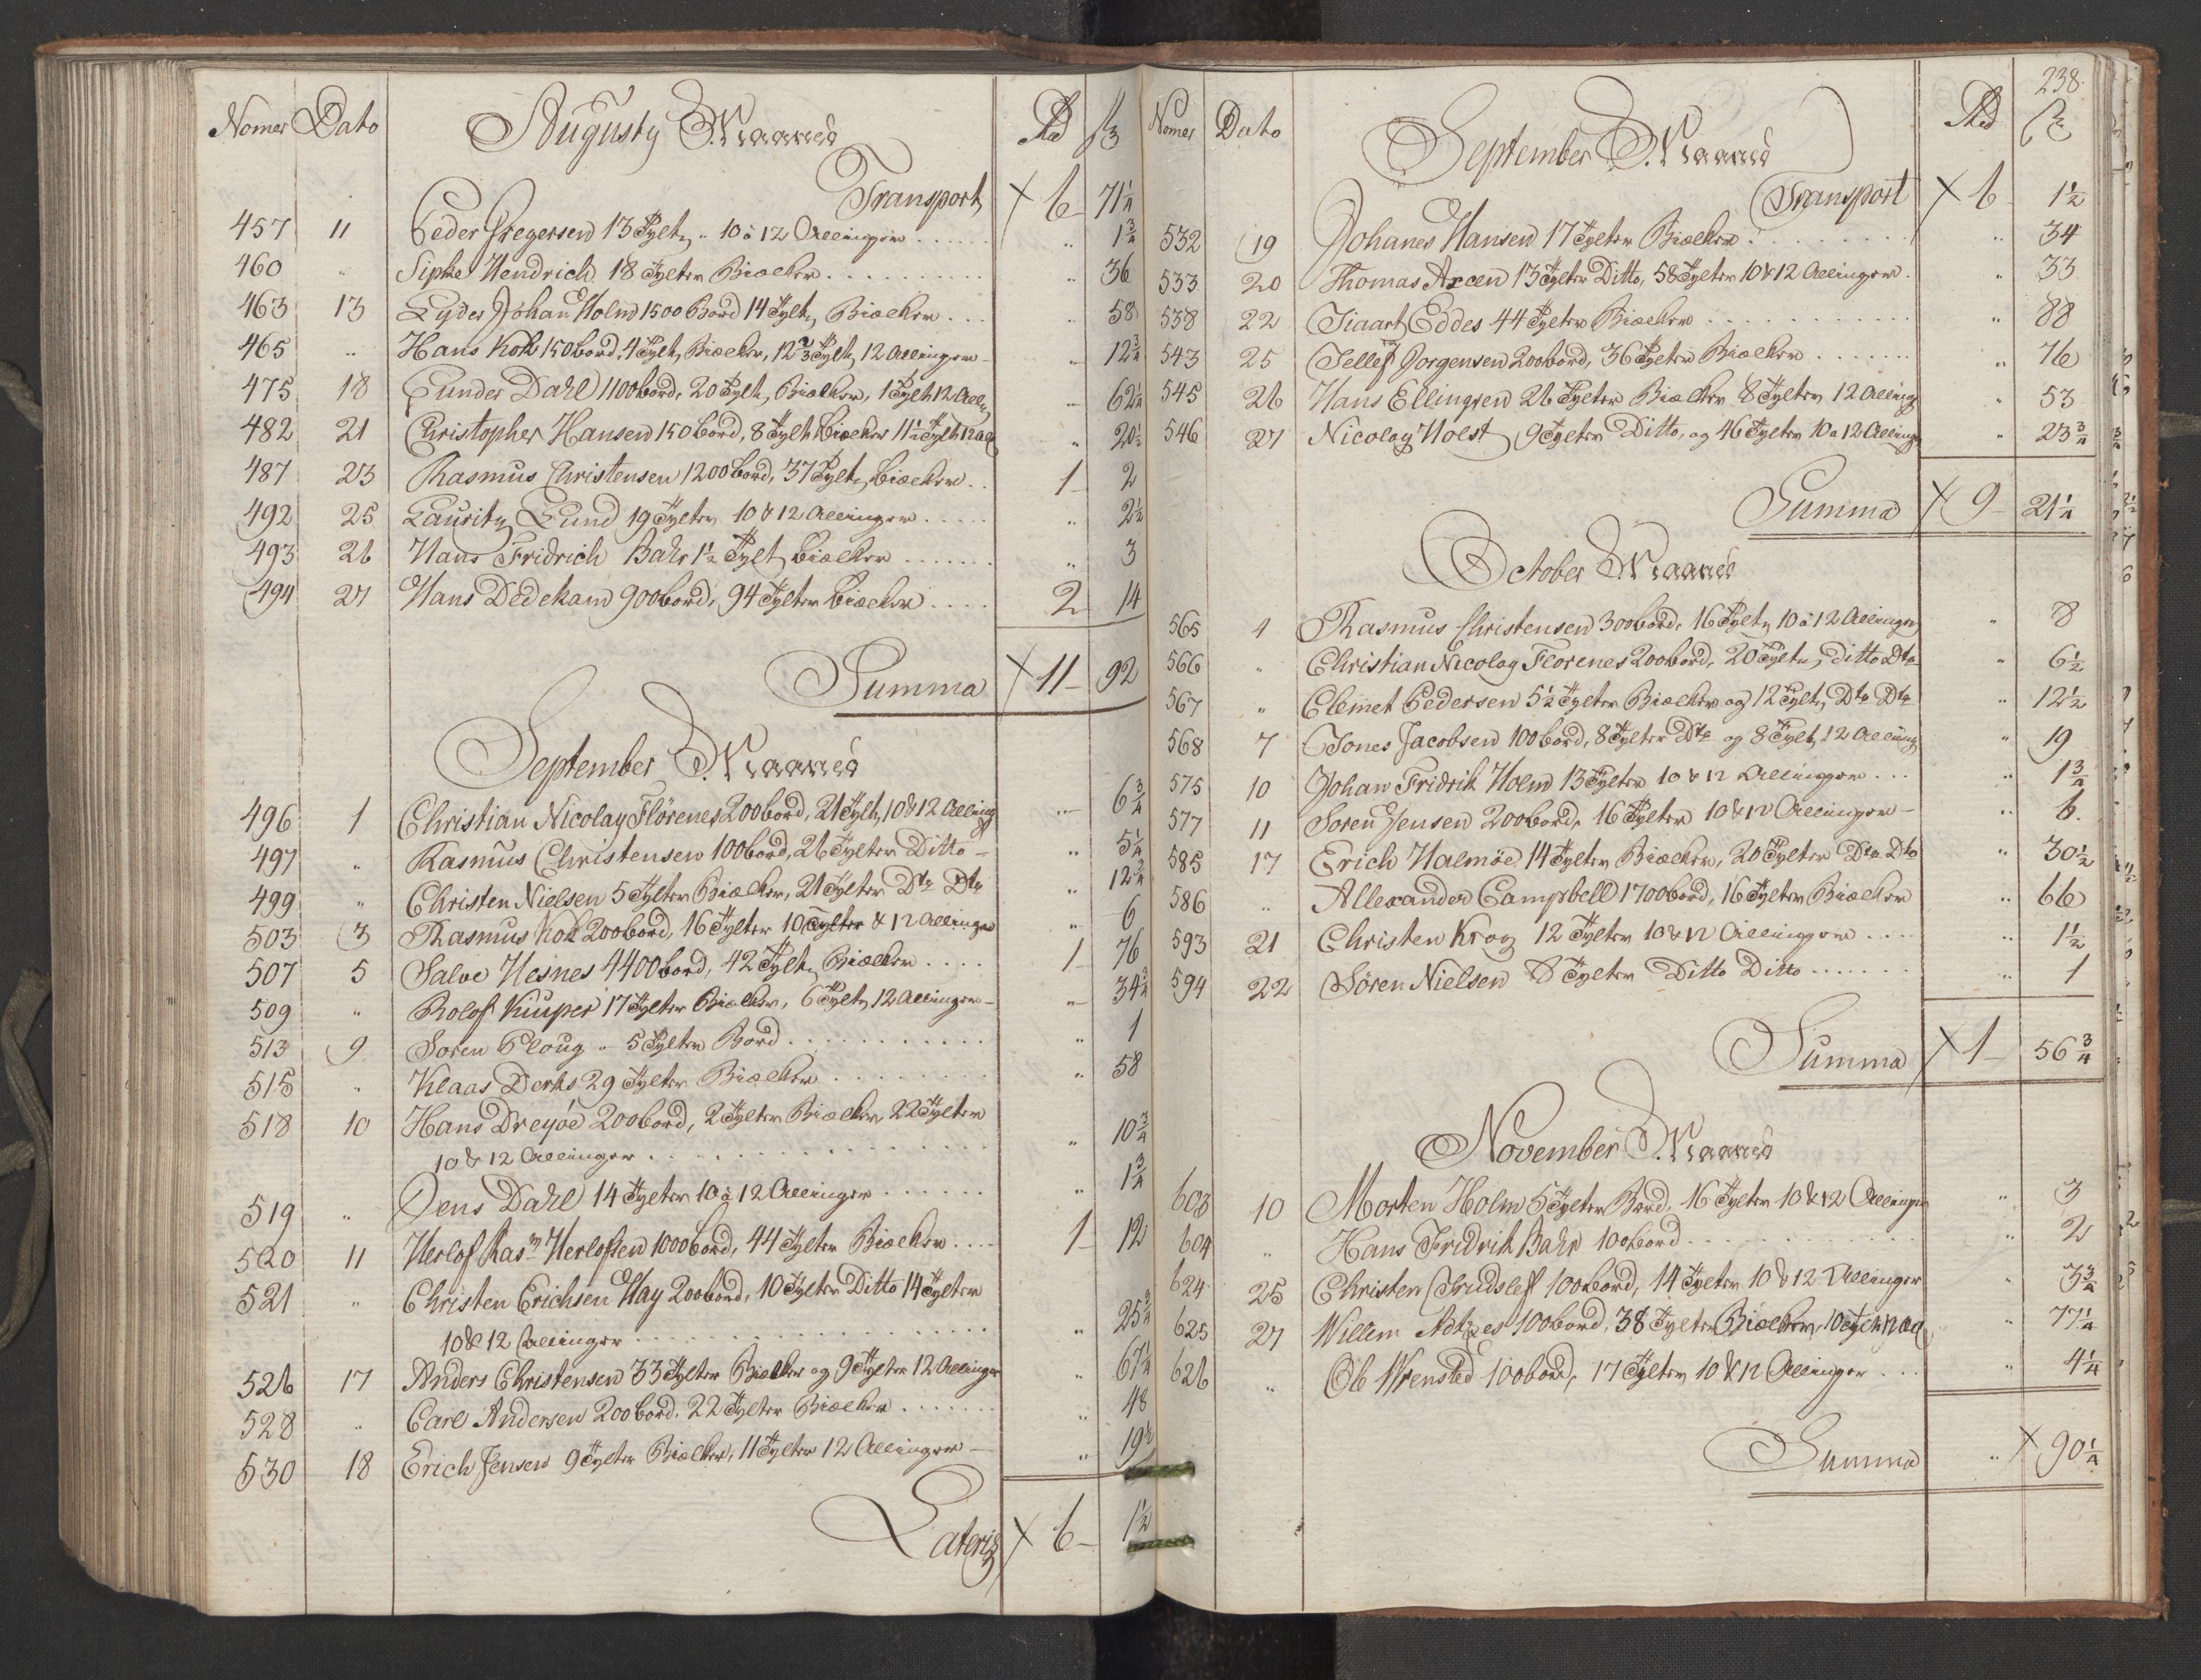 Nomer Dato Augusty Maaned Rd ſz
Transport X 6 71 1/4
457 11 Peder Gregersen 13 Tylt, 10 à 12 Allinger 1 3/4
460 " Sipke Hendrich 18 Tylter Biælker " 36
463 13 Lyder Johan Holm 1500 Bord 14 Tylt, Biælker " 58
465 " Hans Kok 150 bord, 4 Tylt, Biælker, 12 2/3 Tylt, 12 Allinger " 12 3/4
475 18 Gunder Dahl 1100 bord, 20 Tylt, Biælker, 1 Tylt 12 All, " 62 1/4
482 21 Christopher Hansen 150 bord, 8 Tylt Biælker 11 1/2 Tylt 12 al " 20 1/2
487 23 Rasmus Christensen 1200 bord, 37 Tylt, biælker 1 2
492 25 Lauritz Lund 19 Tylter 10 & 12 Allinger " 2 1/2
493 26 Hans Fridrich Bahr 1 1/2 Tylt, biælker " 3
494 27 Hans Dedekam 900 bord, 94 Tylter biælker 2 14
Summa X 11 92
September Maaned
496 1 Christian Nicolay Flörenes 200 bord, 21 Tylt, 10 & 12 Alling " 6 3/4
497 " Rasmus Christensen 100 bord, 26 Tylter Ditto " 5 1/4
499 " Christen Nielsen 5 Tylter Biælker, 21 Tylter Dto Dto " 12 3/4
503 3 Rasmus Kok 200 bord, 16 Tylter 10 Tylter & 12 Allinger " 6
507 5 Salve Hesnes 4400 bord, 42 Tylt, Biælker 1 76
509 " Rolof Kuiper 17 Tylter Biælker, 6 Tylt, 12 Allinger " 34 3/4
513 9 Soren Ploug 5 Tylter Bord " 1
515 " Klaas Derks 29 Tylter Biælker " 58
518 10 Hans Dreyöe 200 bord, 2 Tylter Biælker, 22 Tylter
10 & 12 Allinger " 10 3/4
519 " Jens Dahl 14 Tylter 10 à 12 Allinger " 1 3/4
520 11 Herlof Rasm Herlofsen 1000 bord, 44 Tylter Biælker 1 12
521 " Christen Erichsen Hay 200 bord, 10 Tylter Ditto 14 Tylter
10 & 12 Allinger " 25 3/4
526 17 Anders Christensen 33 Tylter Biælker og 9 Tylter 12 Allinger " 67 1/4
528 " Carl Andersen 200 bord, 22 Tylter Biælker " 48
530 18 Erich Jensen 9 Tylter Biælker, 11 Tylter 12 Allinger " 19 1/2
Lateris X 6 1 1/2
238
Nomer Dato September Maaned Rd ſz
Transport X 6 1 1/2
532 19 Johanes Hansen 17 Tylter Biælker " 34
533 20 Thomas Axcen 13 Tylter Ditto, 58 Tylter 10 & 12 Allinger " 33
538 22 Tiaart Eddes 44 Tylter Biælker " 88
543 25 Tellef Jorgensen 200 bord, 36 Tylter Biælker " 76
545 26 Hans Ellingsen 26 Tylter Biælker 8 Tylter 12 Alling " 53
546 27 Nicolay Holst 9 Tylter Ditto, og 46 Tylter 10 a 12 Alling " 23 3/4
Summa X 9 21 1/4
October Maaned
565 4 Rasmus Christensen 300 bord, 16 Tylt, 10 à 12 Allinger " 8
566 " Christian Nicolay Florenes 200 bord, 20 Tylt, ditto Dto " 6 1/2
567 " Clemet Pedersen 5 1/2 Tylter Biælker og 12 Tylt, Dto Dto " 12 1/2
568 7 Jones Jacobsen 100 bord, 8 Tylter Dto og 8 Tylt, 12 Alling " 19
575 10 Johan Fridrik Holm 13 Tylter 10 & 12 Allinger " 1 3/4
577 11 Soren Jensen 200 bord, 16 Tylter 10 & 12 Allinger " 6
585 17 Erich Halmöe 14 Tylter Biælker, 20 Tylter Dto Dto " 30 1/2
586 " Allexander Campbell 1700 bord, 16 Tylter Biælker " 66
593 21 Christen Krog 12 Tylter 10 & 12 Allinger " 1 1/2
594 22 Sören Nielsen 8 Tylter Ditto Ditto " 1
Summa X 1 56 3/4
November Maaned
603 10 Morten Holm 5 Tylter Bord, 16 Tylter 10 & 12 Allinger " 3
604 " Hans Fridrik Bahr 100 bord " 2
624 25 Christen Trudslef 100 bord, 14 Tylter 10 & 12 Allinger " 3 3/4
625 27 Willem 100 bord, 38 Tylter Biælker, 10 Tylt 12 al " 77 1/4
626 " Ob Wrensted 100 bord, 17 Tylter 10 & 12 Allinger " 4 1/4
Summa " X 90 1/4